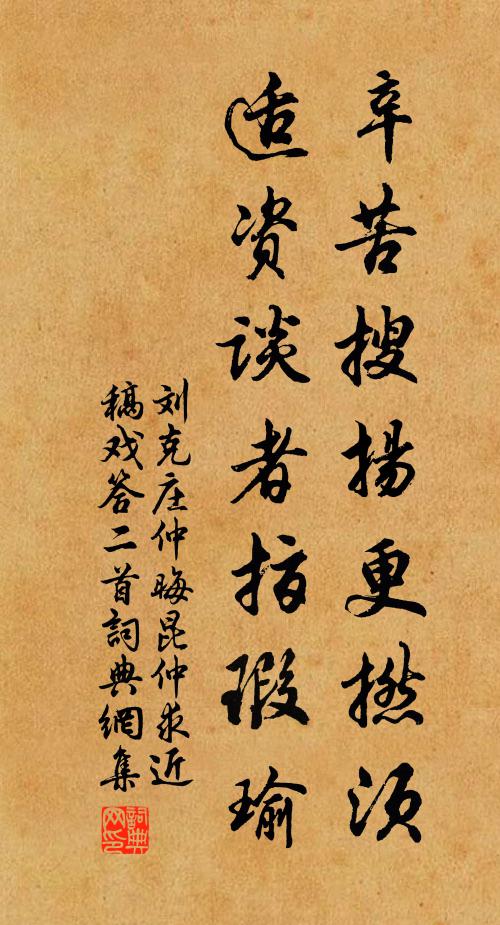 辛苦搜扬更撚须
适资谈者指瑕瑜
刘克庄仲晦昆仲求近
稿戏答二首詞典網集
詞典網印